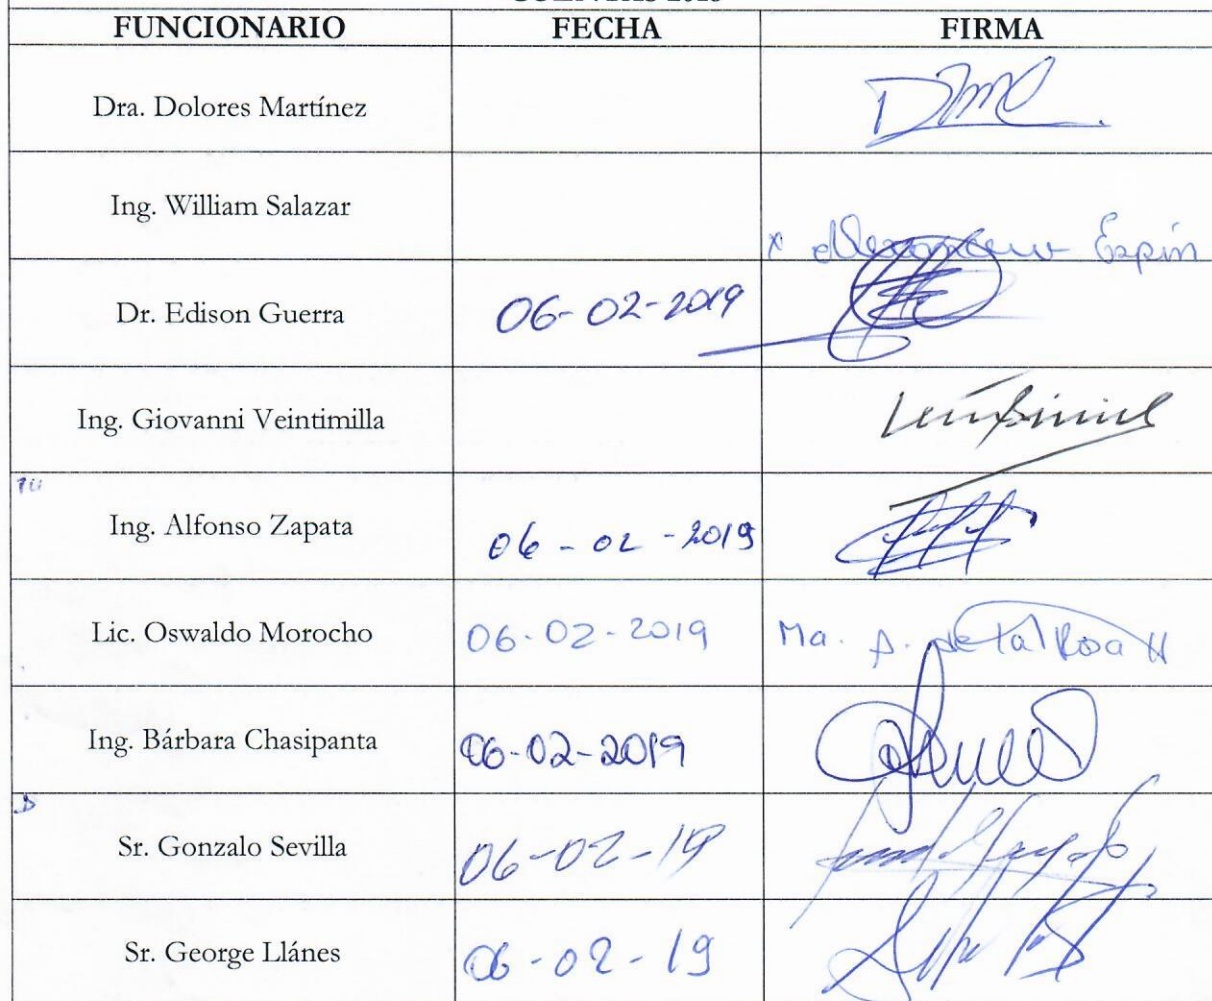 FUNCIONARIO FECHA FIRMA
Dra. Dolores Martínez
Ing. William Salazar
x Espín
Dr. Edison Guerra 06-02-2019
Ing. Giovanni Veintimilla
Ing. Alfonso Zapata 06-02-2019
Lic. Oswaldo Morocho 06-02-2019 Ma. A. de la Rosa H
Ing. Bárbara Chasipanta 06-02-2019
Sr. Gonzalo Sevilla 06-02-19
Sr. George Llánes 06-02-19